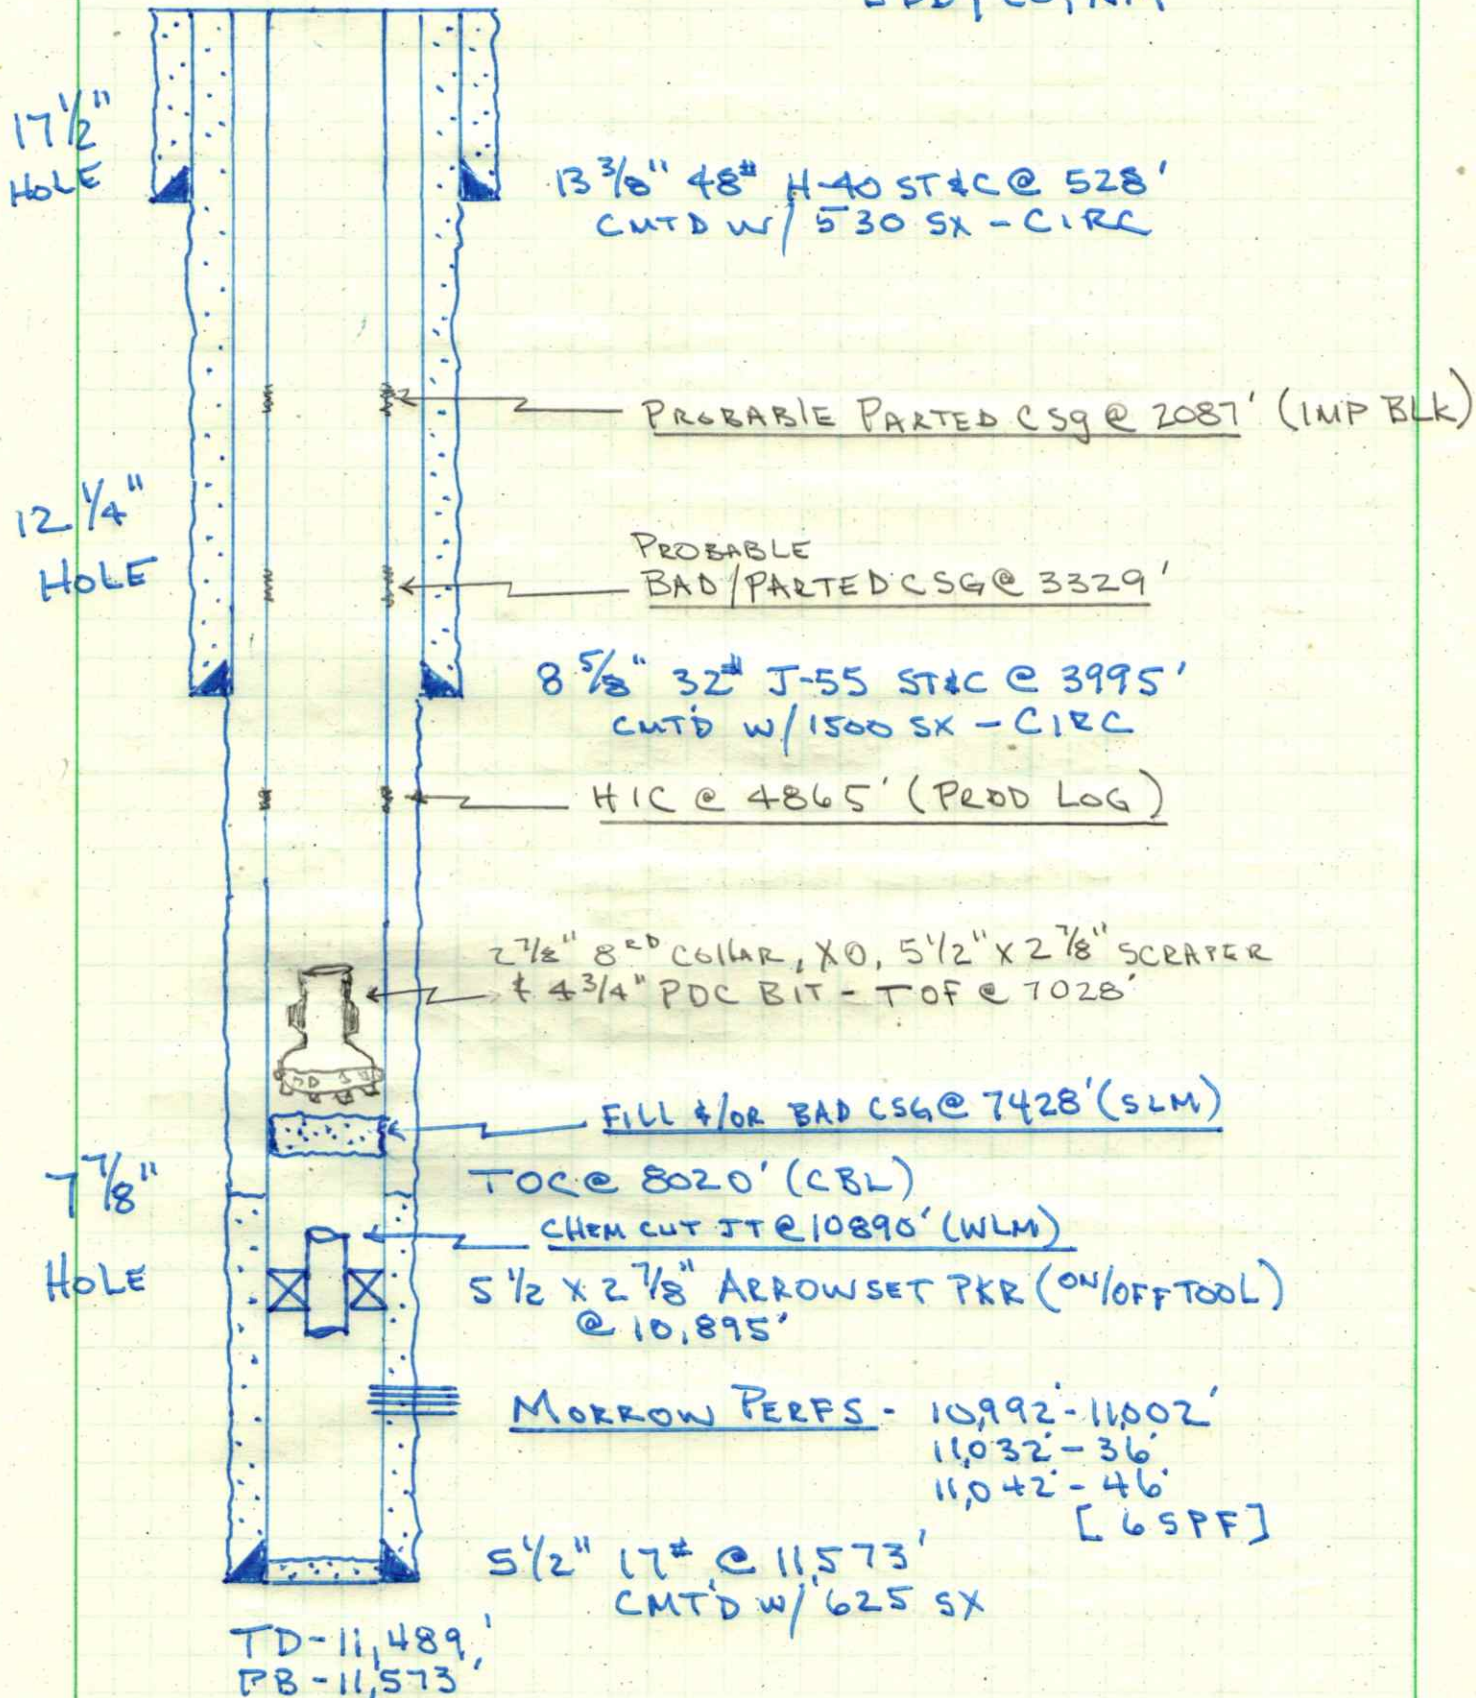 EDDY CO, NM
17 1/2"
HOLE
13 3/8" 48# H-40 ST&C @ 528'
CMTD W/ 530 SX - CIRC
PROBABLE PARTED CSG @ 2087' (IMP BLK)
12 1/4"
HOLE
PROBABLE
BAD/PARTED CSG @ 3329'
8 5/8" 32# J-55 ST&C @ 3995'
CMTD W/ 1500 SX - CIRC
HIC @ 4865' (PROD LOG)
2 7/8" 8RD COLLAR, XO, 5 1/2" X 2 7/8" SCRAPER
& 4 3/4" PDC BIT - TOF @ 7028'
FILL &/OR BAD CSG @ 7428' (SLM)
7 7/8"
HOLE
TOC @ 8020' (CBL)
CHEM CUT JT @ 10890' (WLM)
5 1/2 X 2 7/8" ARROWSET PKR (ON/OFF TOOL)
@ 10,895'
MORROW PERFS - 10,992'-11,002'
11,032'-36'
11,042'-46'
[6 SPF]
5 1/2" 17# @ 11,573'
CMT'D W/ 625 SX
TD-11,489'
PB-11,573'